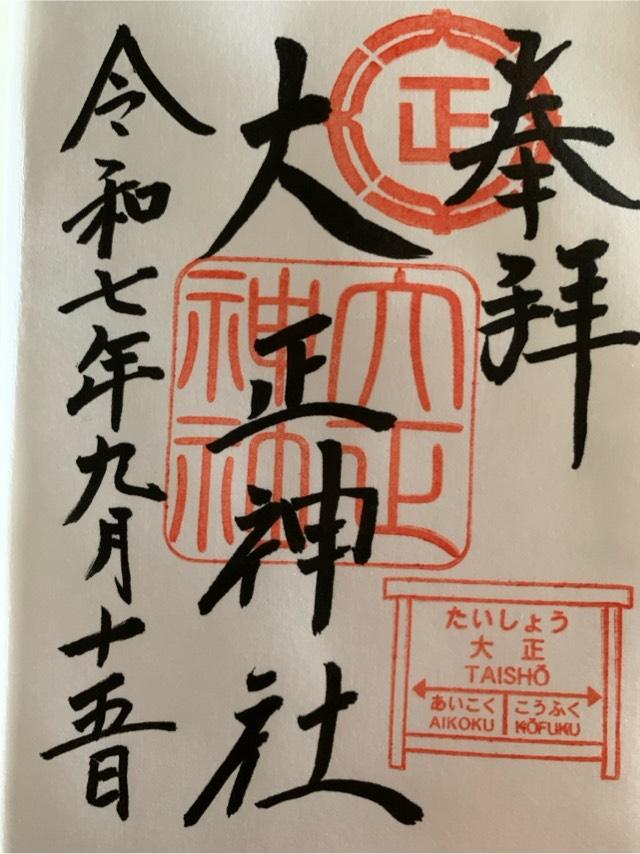 奉拝
正
大正神社
大正
神社
令和七年九月十五日
たいしょう
大正
TAISHŌ
あいこく こうふく
AIKOKU KŌFUKU